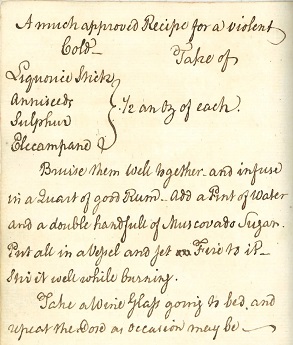 A much approved Recipe for a violent
Cold - Take of
Liquorice Stick
Anniseeds
Sulphur
Elecampane
} ½ an Oz of each.
Bruise them well together and infuse
in a Quart of good Rum - Add a Pint of Water
and a double handfull of Muscovado Sugar.
Put all in a Vessel and set Fire to it -
Stir it well while burning.
Take a Wine Glass going to bed, and
repeat the Dose as occasion may be